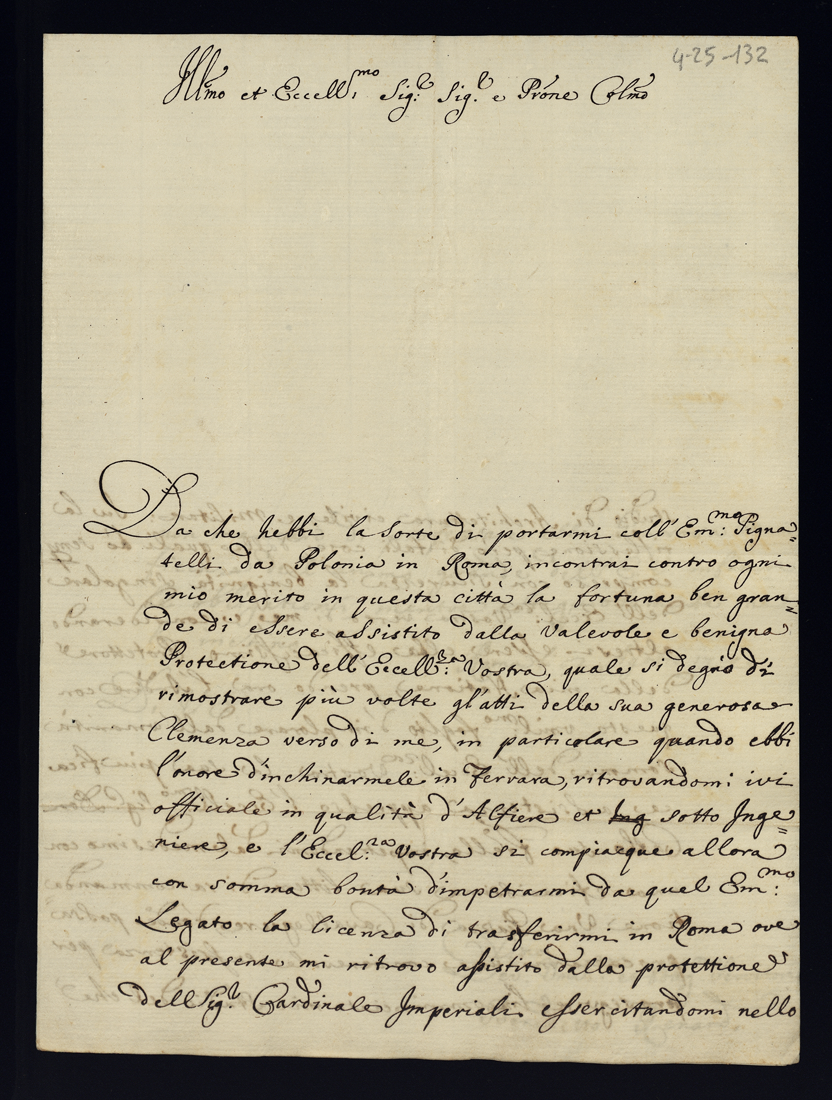 4-25-132
Illmo et Eccell:mo Sig:r Sig:r e Prone Colmo
Da che hebbi la sorte di portarmi coll'Em:mo Pigna=
telli da Polonia in Roma, incontrai contro ogni
mio merito in questa città la fortuna ben gran=
de di essere assistito dalla valevole e benigna
Protectione dell'Eccell:za Vostra, quale si degnò di
rimostrare più volte gl'atti della sua generosa
Clemenza verso di me, in particolare quando ebbi
l'onore d'inchinarmele in Ferrara, ritrovandomi ivi
officiale in qualità d'Alfiere et Ing sotto Inge=
niere, e l'Eccel:za Vostra si compiacque allora
con somma bontà d'impetrarmi da quel Em:mo
Legato la licenza di trasferirmi in Roma ove
al presente mi ritrovo assistito dalla protettione
dell Sig:r Cardinale Imperiali essercitandomi nello